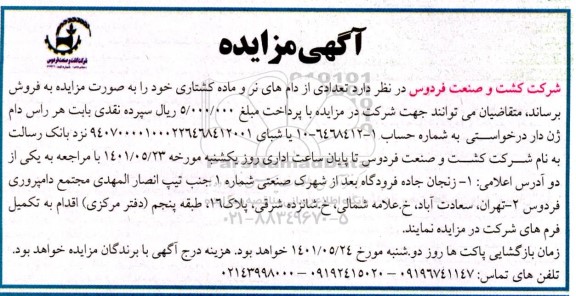 آگهی مزایده
شرکت کشت و صنعت فردوس
شرکت کشت و صنعت فردوس در نظر دارد تعدادی از دام های نر و ماده کشتاری خود را به صورت مزایده به فروش
برساند، متقاضیان می توانند جهت شرکت در مزایده با پرداخت مبلغ ۵/۰۰۰/۰۰۰ ریال سپرده نقدی بابت هر راس دام
ژن دار درخواستی به شماره حساب ۱-۶۴۶۸۴۱۲-۱۰ یا شبای ۹۴۰۷۰۰۰۰۱۰۰۰۲۲۶۴۶۸۴۱۲۰۰۱ نزد بانک رسالت
به نام شرکت کشت و صنعت فردوس تا پایان ساعت اداری روز یکشنبه مورخه ۱۴۰۱/۰۵/۲۳ با مراجعه به یکی از
دو آدرس اعلامی: ۱- زنجان جاده فرودگاه بعد از شهرک صنعتی شماره ۱ جنب تیپ انصار المهدی مجتمع دامپروری
فردوس ۲-تهران، سعادت آباد، خ.علامه شمالی خ.شانزده شرقی، پلاک۱۶ طبقه پنجم (دفتر مرکزی) اقدام به تکمیل
فرم های شرکت در مزایده نمایند.
۰۲۱-۸۸۳۴۹۶۷۰-۵
زمان بازگشایی پاکت ها روز دو.شنبه مورخ ۱۴۰۱/۰۵/۲۴ خواهد بود. هزینه درج آگهی با برندگان مزایده خواهد بود.
تلفن های تماس: ۰۹۱۹۶۷۴۱۱۴۷ – ۰۹۱۹۲۴۱۵۰۲۰ – ۰۲۱۴۳۹۹۸۰۰۰